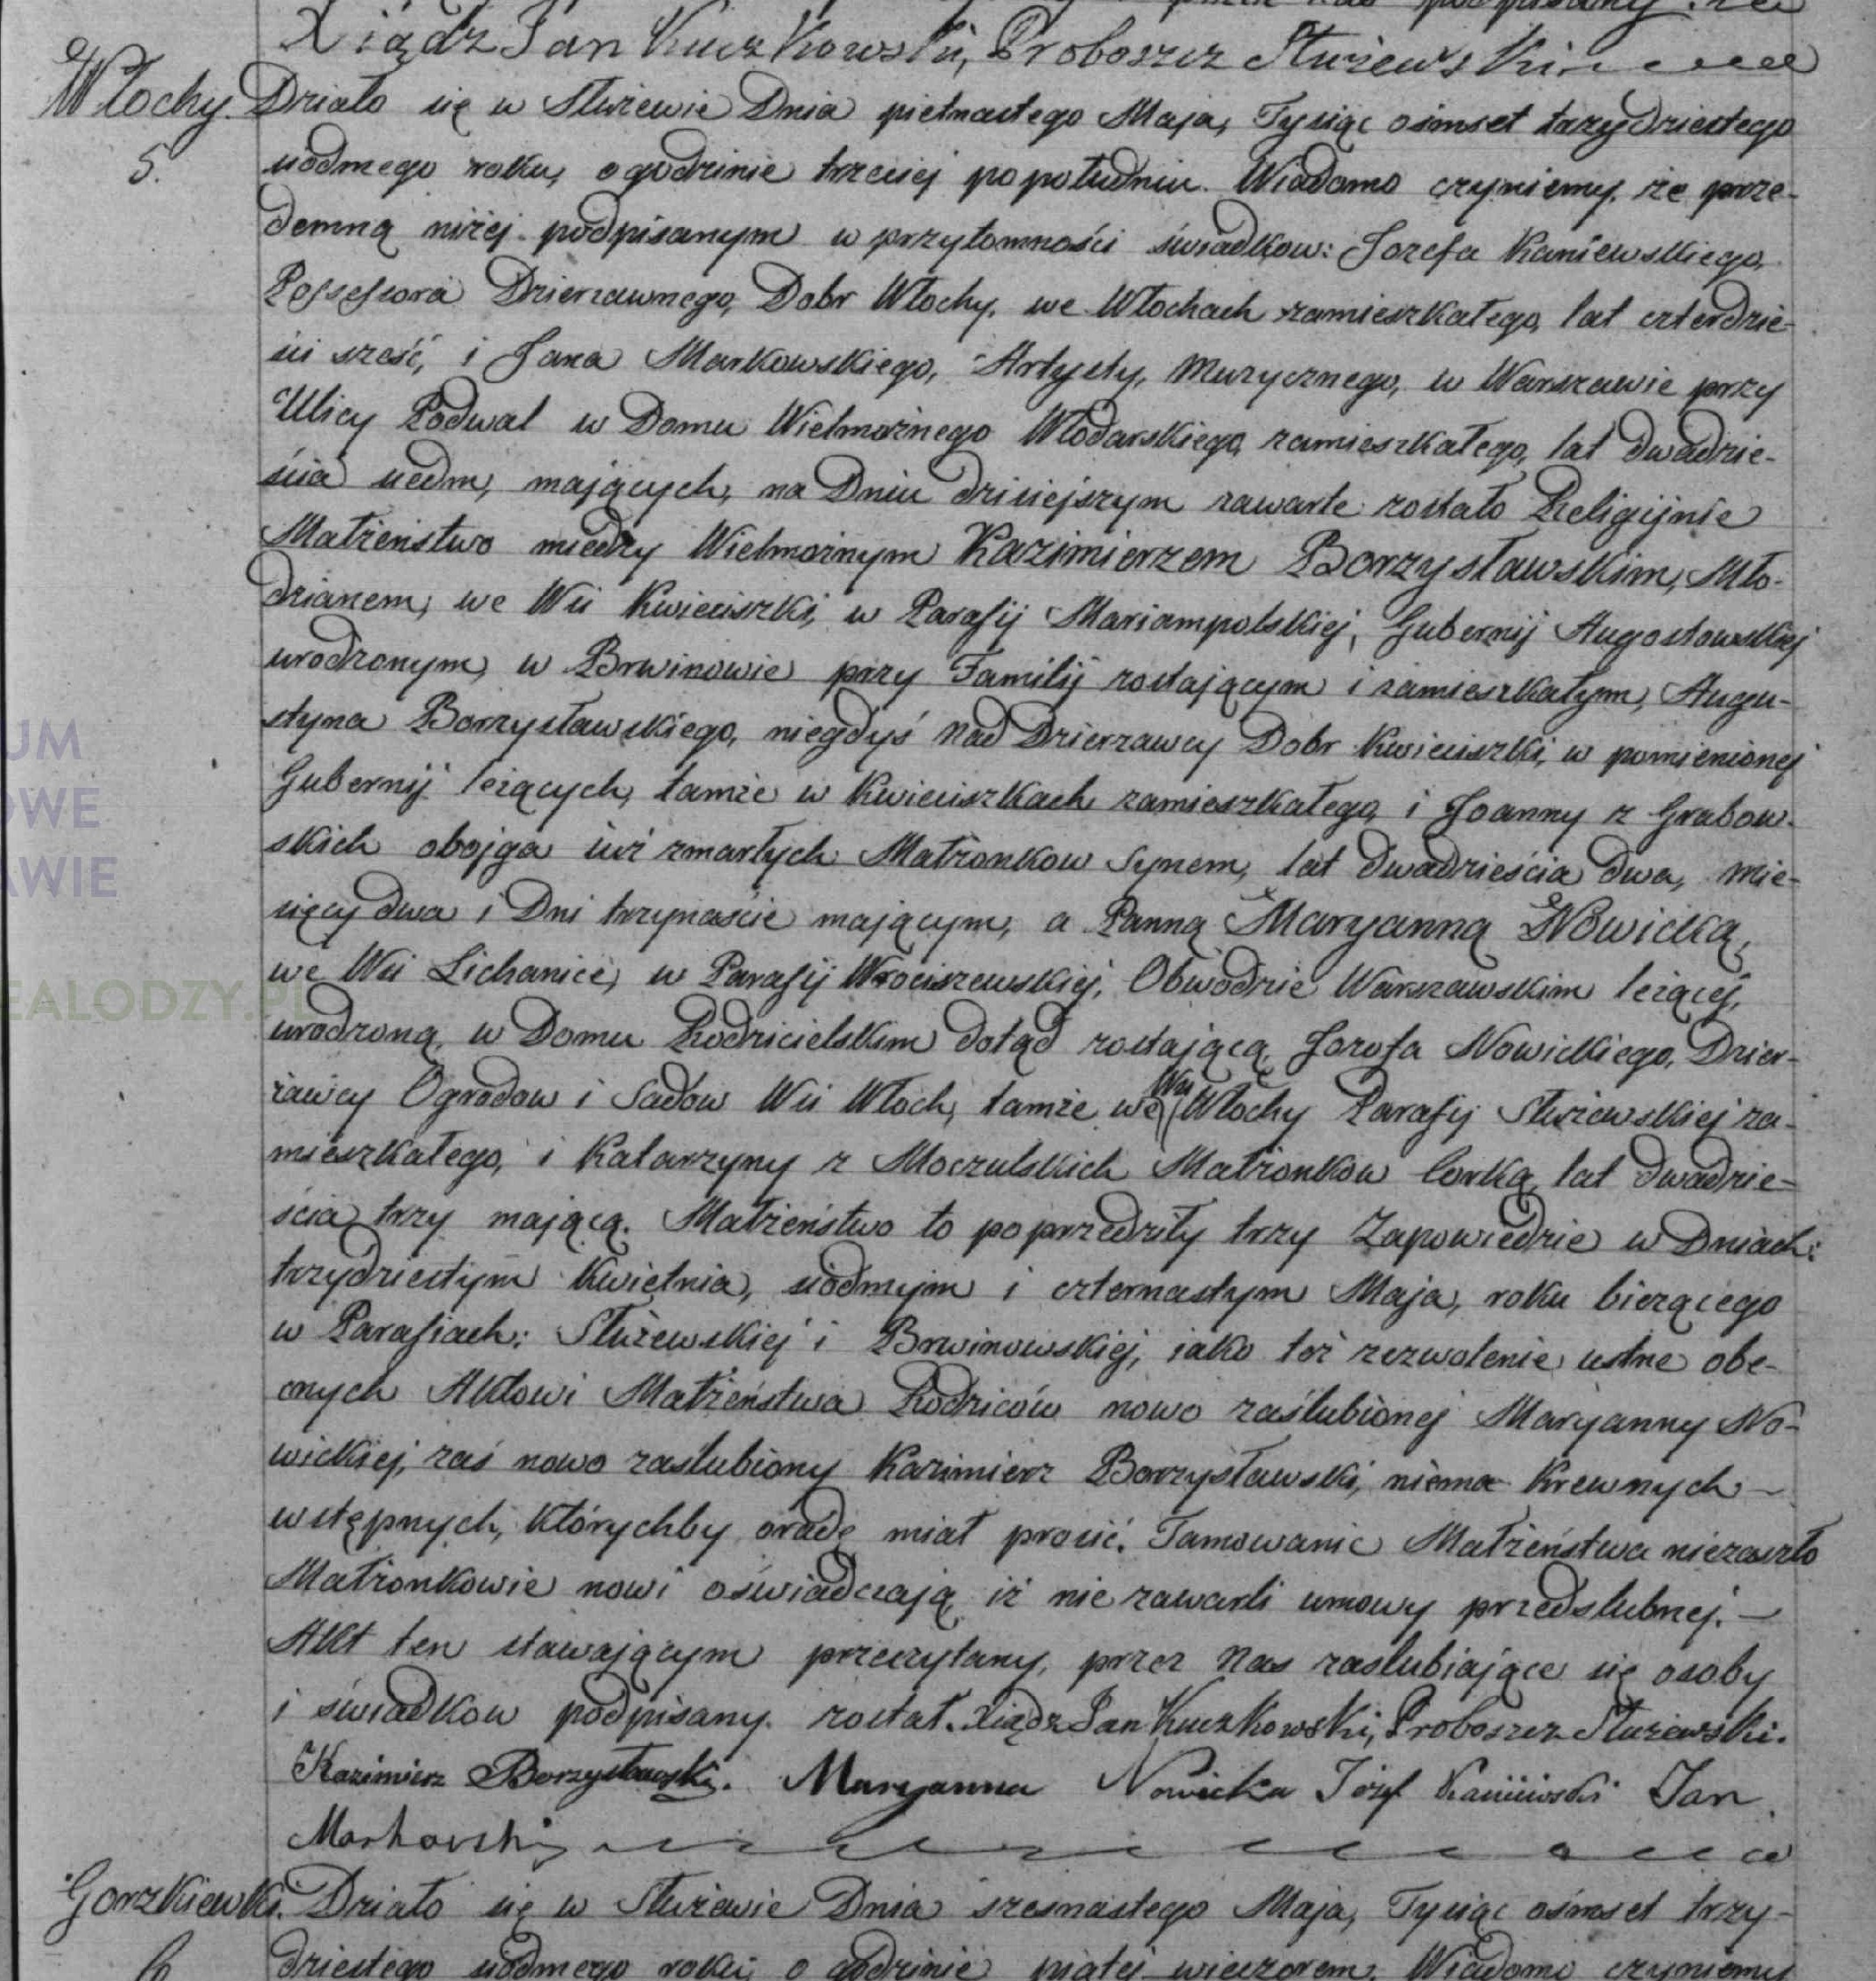 Xiądz Jan Kuczkowski, Proboszcz Służewski
Włochy. Działo się w Służewie Dnia pietnastego Maja, Tysiąc ośmset trzydziestego
5. siodmego roku, o godzinie trzeciej popołudniu. Wiadomo czyniemy, że prze-
demną niżej podpisanym w przytomności świadkow: Jozefa Kaniewskiego,
Possessora Dzierzawnego, Dobr Włochy, we Włochach zamieszkałego, lat czterdzie-
ści sześć, i Jana Markowskiego, Artysty, Muzycznego, w Warszawie przy
Ulicy Podwal w Domu Wielmożnego Włodarskiego, zamieszkałego, lat dwadzie-
ścia siedm, mających, na Dniu dzisiejszym zawarte zostało Religijnie
Małżeństwo między Wielmożnym Kazimierzem Borzysławskim, Mło-
dzianem, we Wsi Kwieciszki, w Parafij Mariampolskiej, Gubernij Augostowskiej
urodzonym, w Brwinowie przy Familij zostającym i zamieszkałym, Augu-
styna Borzysławskiego, niegdyś Nad Dzierzawcy Dobr Kwieciszki, w pomienionej
Gubernij leżących, tamże w Kwieciszkach zamieszkałego, i Joanny z Grabow-
skich obojga iuż zmarłych Małżonkow Synem, lat dwadzieścia dwa, mie-
sięcy dwa i Dni trzynaście mającym, a Panną Maryanną Nowicką,
we Wsi Lichanice, w Parafij Wrociszewskiej, Obwodzie Warszawskim leżącej,
urodzoną, w Domu Rodzicielskim dotąd zostającą, Jozefa Nowickiego, Dzier-
żawcy Ogrodow i Sadow Wsi Włoch, tamże we Wsi Włochy Parafij Służewskiej za-
mieszkałego, i Katarzyny z Moczulskich Małżonkow Corką, lat dwadzie-
ścia trzy mającą. Małżeństwo to poprzedziły trzy Zapowiedzie w Dniach:
trzydziestym Kwietnia, siodmym i czternastym Maja, roku bieżącego
w Parafiach: Służewskiej i Brwinowskiej, iako też zezwolenie ustne obe-
cnych Aktowi Małżeństwa Rodziców nowo zaślubionej Maryanny No-
wickiej, zaś nowo zaslubiony Kazimierz Borzysławski, niema Krewnych
wstępnych, którychby oradę miał prosić. Tamowanie Małżeństwa niezaszło
Małżonkowie nowi oświadczają, iż nie zawarli umowy przedślubnej.
Akt ten stawającym przeczytany, przez Nas zaslubiające się osoby
i świadkow podpisany został. Xiądz Jan Kuczkowski, Proboszcz Służewski.
Kazimierz Borzysławski. Maryanna Nowicka Józef Kaniewski Jan
Markowski
Gorzkiewki. Działo się w Służewie Dnia szesnastego Maja, Tysiąc ośmset trzy-
6 dziestego siodmego roku, o godzinie piątej wieczorem. Wiadomo czyniemy
UM
OWE
AWIE
EALODZY.PL